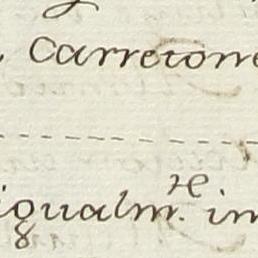 Carretone
igualm.te im